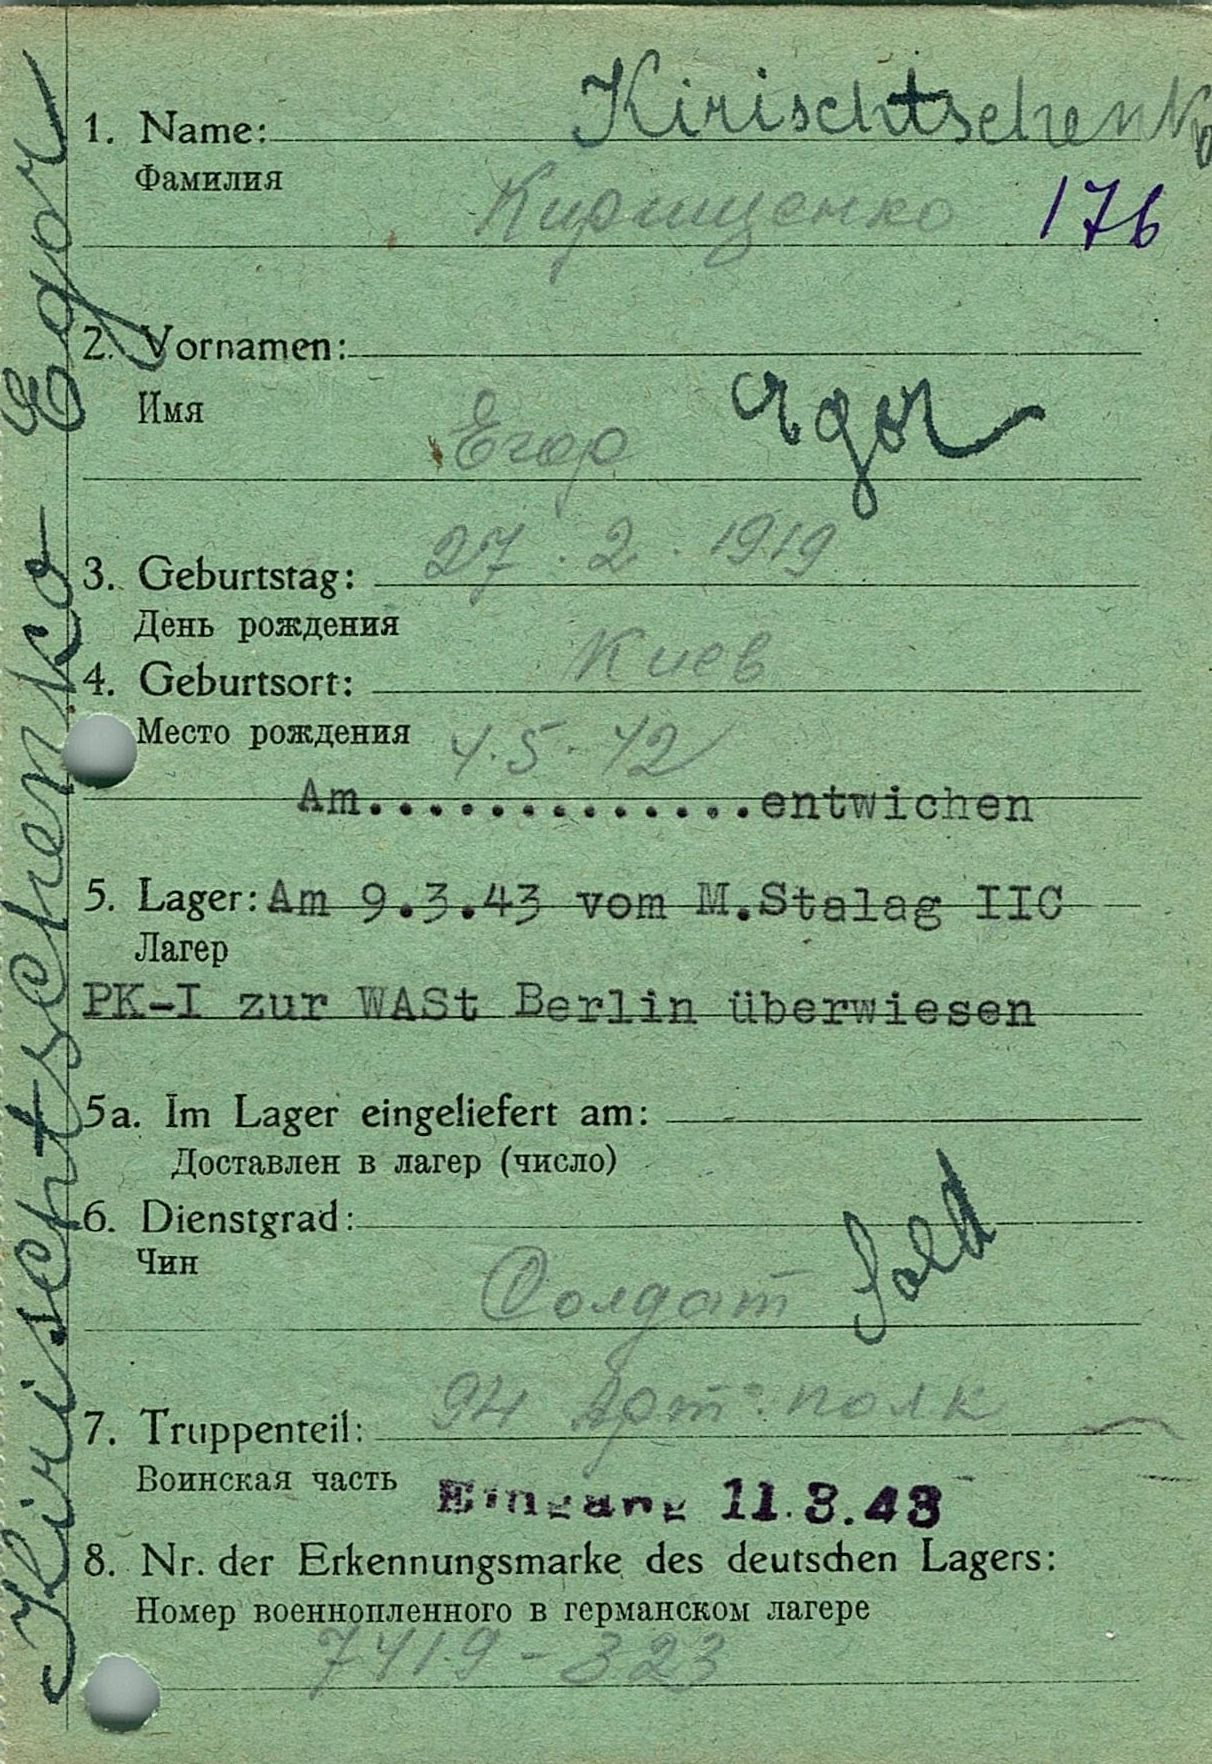 Kirischtschenko Egor
1. Name: Kirischtschenko
Фамилия
Кирищенко 176
2. Vornamen:
Имя
Егор Egor
3. Geburtstag: 27.2.1919
День рождения
4. Geburtsort: Киев
Место рождения
4.5.42
Am.............entwichen
5. Lager: Am 9.3.43 vom M.Stalag IIC
Лагер
PK-I zur WASt Berlin überwiesen
5a. Im Lager eingeliefert am:
Доставлен в лагер (число)
6. Dienstgrad:
Чин
Солдат Sold
7. Truppenteil: 94 Арт. полк
Воинская часть
Eingang 11.3.43
8. Nr. der Erkennungsmarke des deutschen Lagers:
Номер военнопленного в германском лагере
7419-323